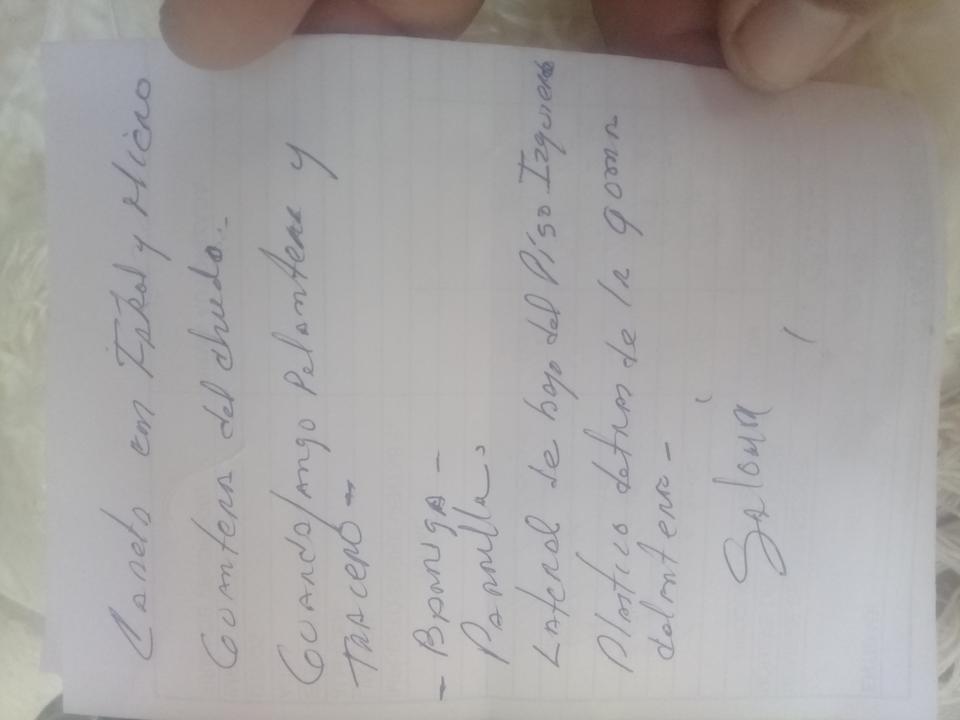 Careta con Iskol y Micro
Guantera del chuedo.-
Guardafango Pelantera y
Tracero -
- Barriga -
Parrilla.
Lateral de bajo del Piso Izquierdo
Plastico detras de la goma
delantera -